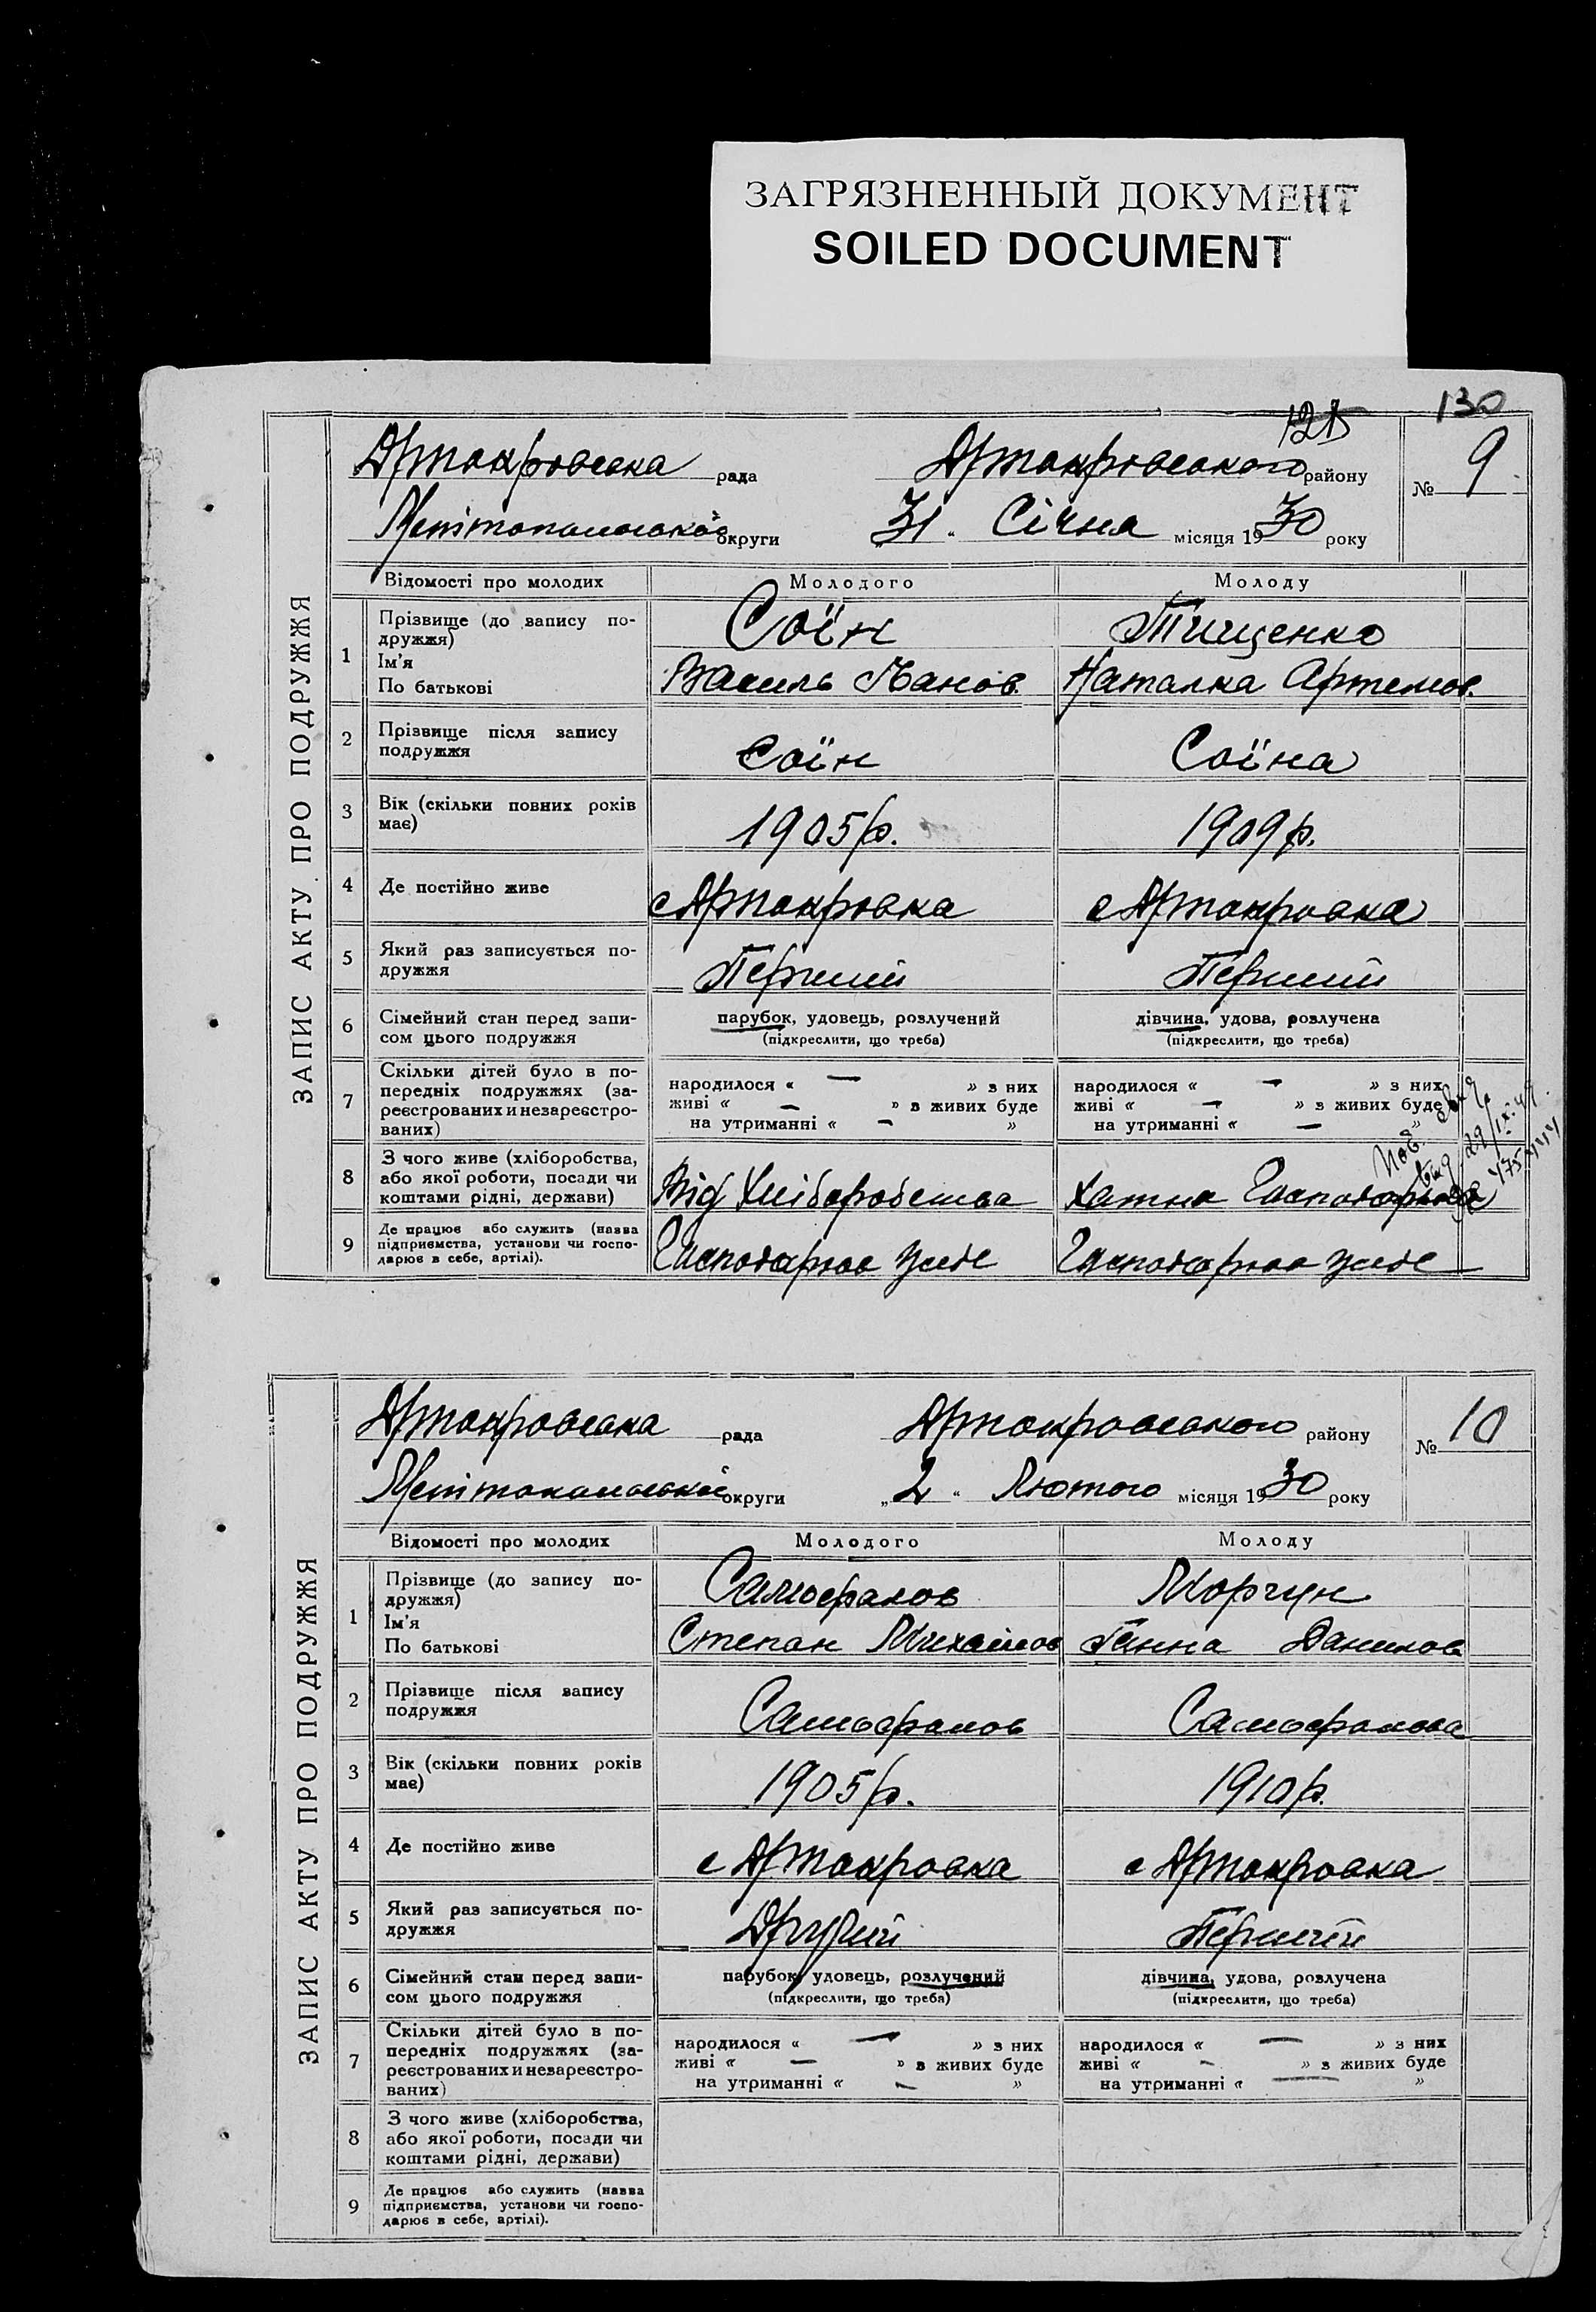 ЗАГРЯЗНЕННЫЙ ДОКУМЕНТ
SOILED DOCUMENT
130
ЗАПИС АКТУ ПРО ПОДРУЖЖЯ
рада району № 9
Мелітопольської округи „31“ Січня місяця 1930 року
Відомості про молодих Молодого Молоду
1 Прізвище (до запису по-
дружжя)
Ім'я
По батькові
Соїн Тищенко
Василь Наталка Артемов.
2 Прізвище після запису
подружжя
Соїн Соїна
3 Вік (скільки повних років
має)
1905 р. 1909 р.
4 Де постійно живе
5 Який раз записується по-
дружжя
Перший Перший
6 Сімейний стан перед запи-
сом цього подружжя
парубок, удовець, розлучений дівчина, удова, розлучена
(підкреслити, що треба) (підкреслити, що треба)
7 Скільки дітей було в по-
передніх подружжях (за-
реєстрованих и незареєстро-
ваних)
народилося « — » з них народилося « — » з них
живі « — » в живих буде живі « — » з живих буде
на утриманні « — » на утриманні « — »
8 З чого живе (хліборобства,
або якої роботи, посади чи
коштами рідні, держави)
Від Хліборобства Хатня
9 Де працює або служить (назва
підприємства, установи чи госпо-
дарює в себе, артілі).
ЗАПИС АКТУ ПРО ПОДРУЖЖЯ
рада району № 10
Мелітопольської округи „2“ Лютого місяця 1930 року
Відомості про молодих Молодого Молоду
1 Прізвище (до запису по-
дружжя)
Ім'я
По батькові
Самофалов Моргун
Степан Михайлов Ганна Данилов
2 Прізвище після запису
подружжя
Самофалов Самофалова
3 Вік (скільки повних років
має)
1905 р. 1910 р.
4 Де постійно живе
5 Який раз записується по-
дружжя
Другий Перший
6 Сімейний стан перед запи-
сом цього подружжя
парубок, удовець, розлучений дівчина, удова, розлучена
(підкреслити, що треба) (підкреслити, що треба)
7 Скільки дітей було в по-
передніх подружжях (за-
реєстрованих и незареєстро-
ваних)
народилося « — » з них народилося « — » з них
живі « — » в живих буде живі « - » з живих буде
на утриманні « — » на утриманні « — »
8 З чого живе (хліборобства,
або якої роботи, посади чи
коштами рідні, держави)
9 Де працює або служить (назва
підприємства, установи чи госпо-
дарює в себе, артілі).